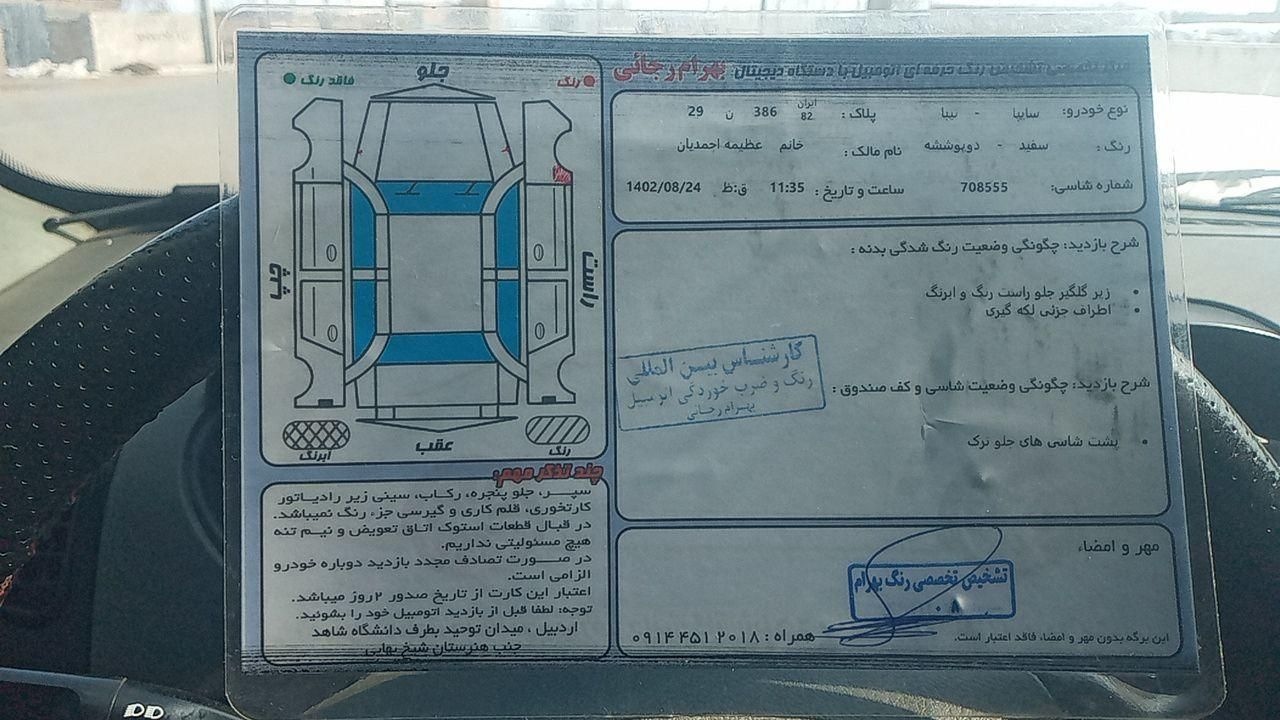 کارشناسی تشخیص رنگ حرفه ای اتومبیل با دستگاه دیجیتال بهرام رجائی
نوع خودرو: سایپا - تیبا پلاک : ایران 82 386 ن 29
رنگ : سفید - دوپوششه نام مالک : خانم عظیمه احمدیان
شماره شاسی: 708555 ساعت و تاریخ : 11:35 ق:ظ 1402/08/24
شرح بازدید: چگونگی وضعیت رنگ شدگی بدنه :
• زیر گلگیر جلو راست رنگ و ابرنگ
• اطراف جزئی لکه گیری
کارشناس بین المللی
رنگ و ضرب خوردگی اتومبیل
بهرام رجائی
شرح بازدید: چگونگی وضعیت شاسی و کف صندوق :
• پشت شاسی های جلو ترک
مهر و امضاء
تشخیص تخصصی رنگ بهرام
این برگه بدون مهر و امضاء فاقد اعتبار است.
همراه : ۰۹۱۴ ۴۵۱ ۲۰۱۸
رنگ
جلو
فاقد رنگ
راست
چپ
رنگ
عقب
آبرنگ
چند تذکر مهم:
سپـــر، جلو پنجره، رکاب، سینی زیر رادیاتور
کارتخوری، قلم کاری و گیرسی جزء رنگ نمیباشد.
در قبال قطعات استوک اتاق تعویض و نیم تنه
هیچ مسئولیتی نداریم.
در صـــورت تصادف مجدد بازدید دوباره خودرو
الزامی است.
اعتبار این کارت از تاریخ صدور ۲روز میباشد.
توجه: لطفا قبل از بازدید اتومبیل خود را بشوئید.
اردبیل ، میدان توحید بطرف دانشگاه شاهد
جنب هنرستان شیخ بهایی